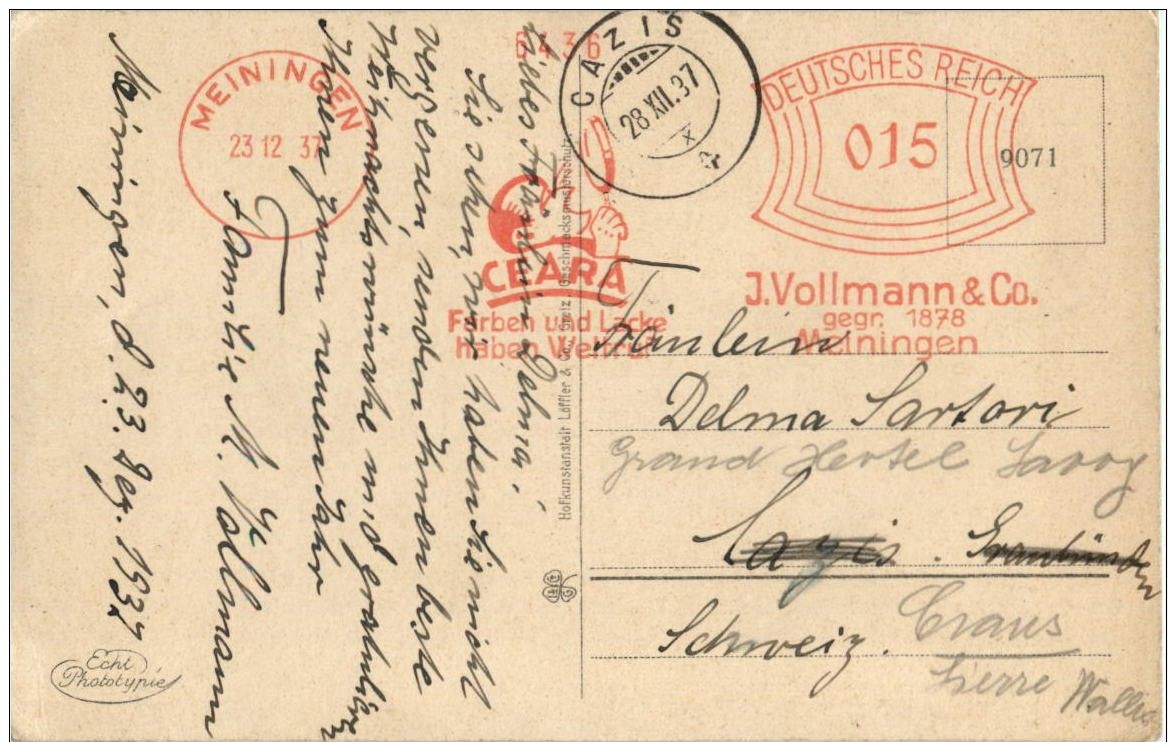 MEININGEN
23 12 37
6436
CAZIS
28 XII.37
X
DEUTSCHES REICH
015
9071
CEARA
Farben und Lacke
haben Weltruf
J. Vollmann & Co.
gegr. 1878
Meiningen
Meiningen, d. 23. Dez. 1937
Liebes Fräulein Delma!
Sie sehen, wir haben Sie nicht
vergessen, senden Ihnen beste
Weihnachtswünsche und gratulieren
Ihnen zum neuen Jahr
Familie A. Vollmann
Fräulein
Delma Sartori
Grand Hotel Savoy
Cazis. Graubünden
Schweiz.
Crans
Sierre Wallis
Hofkunstanstalt Löffler & Co., Greiz. Geschmacksmusterschutz
Echt
Phototypie